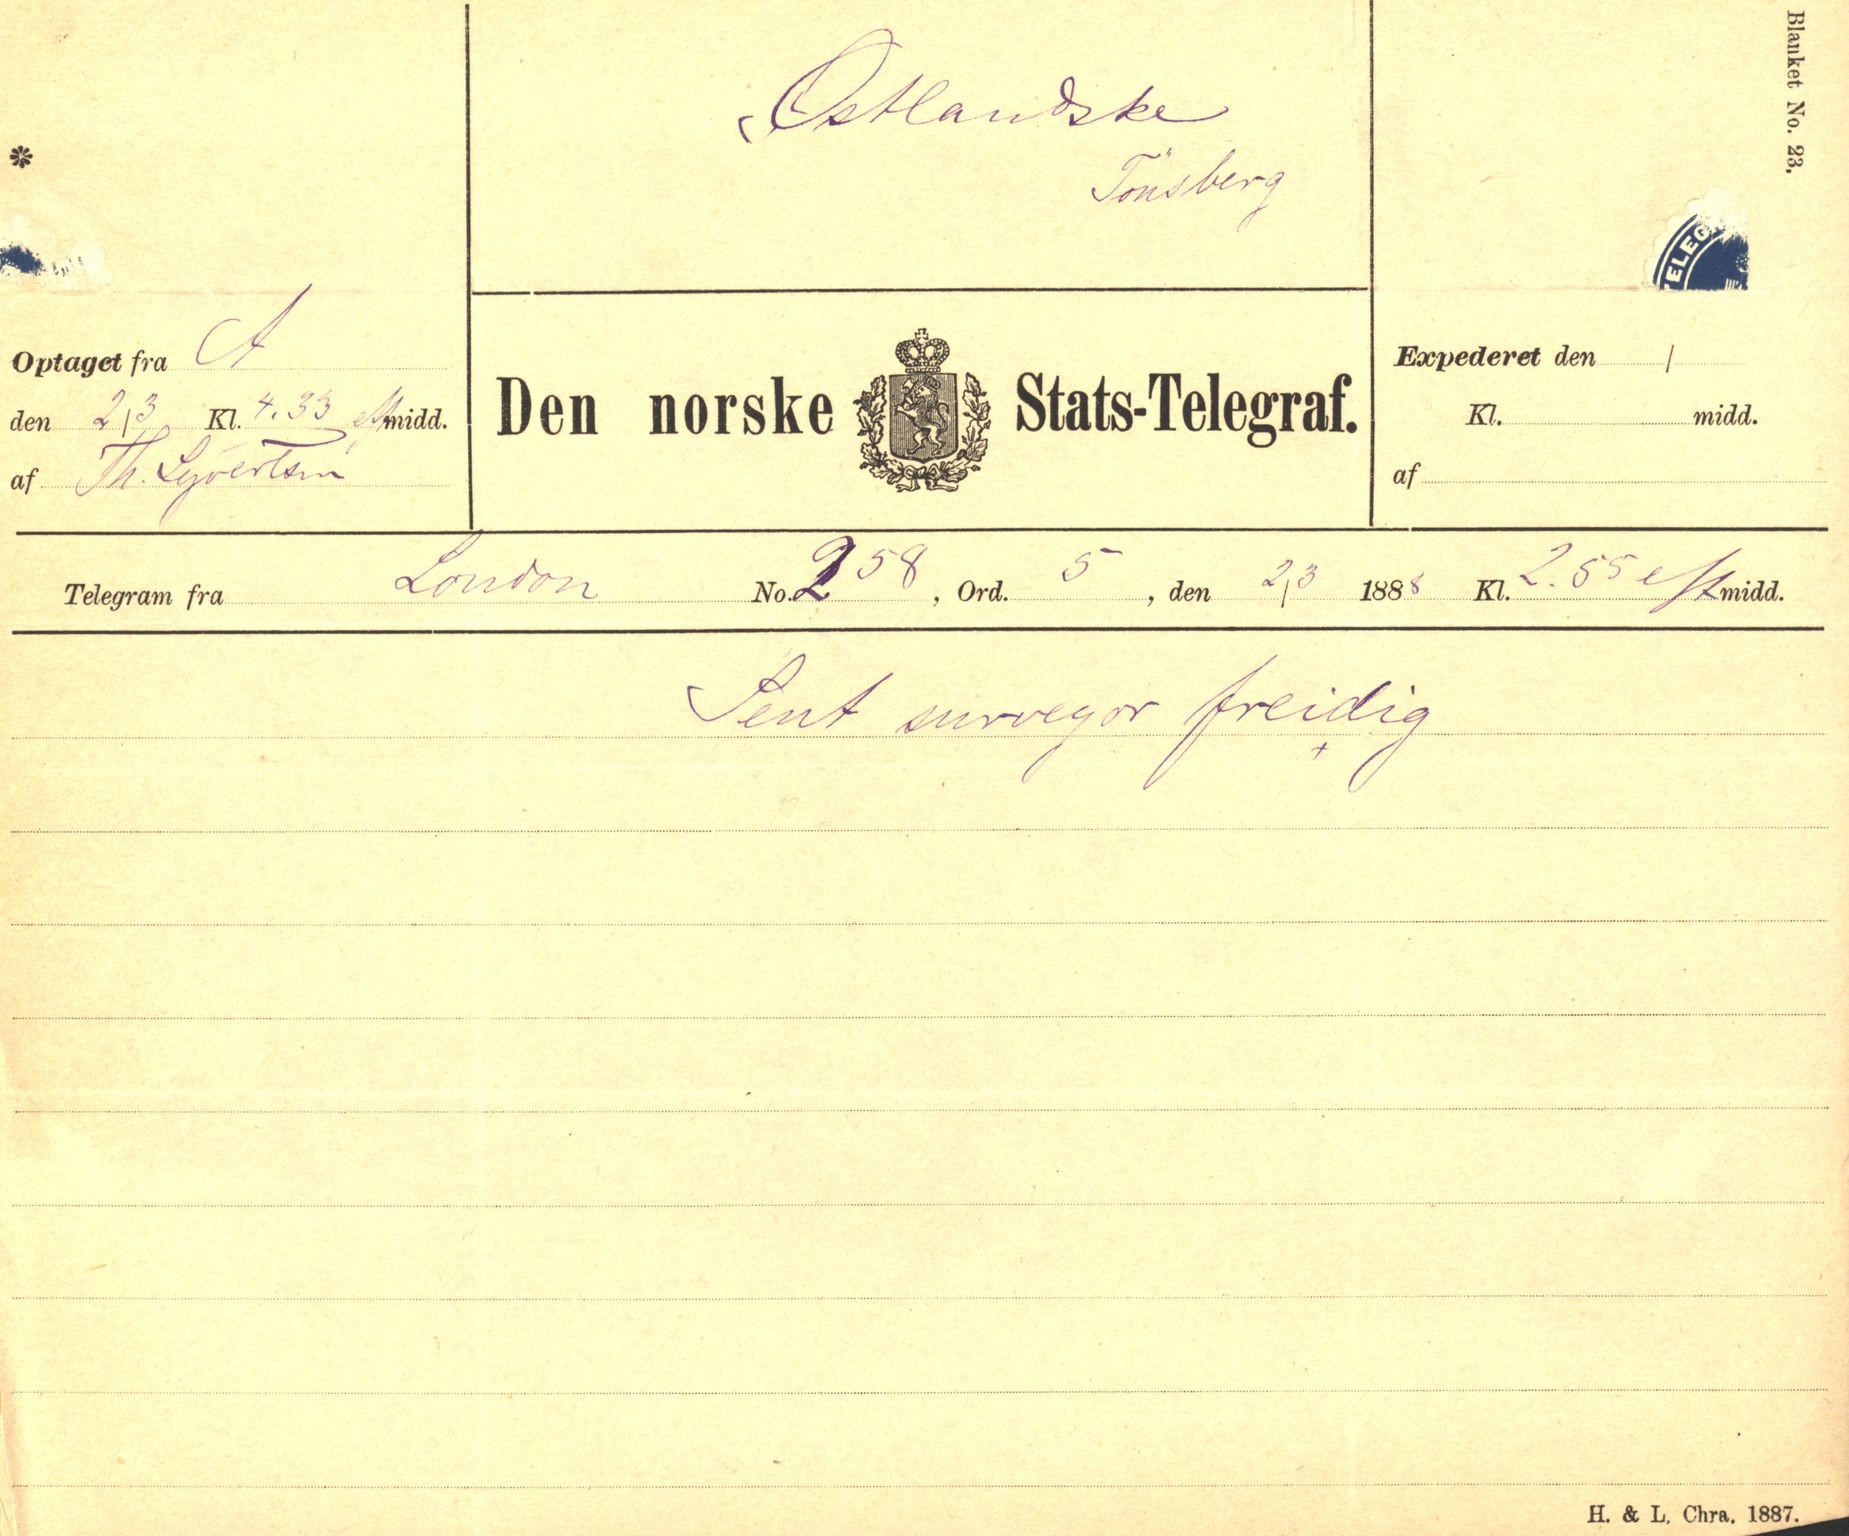 Blanket No. 23.
Östlandske
Tönsberg
*
TELEG
Optaget fra A
den 2/3 Kl. 4.33 eftmidd.
af Th. Syvertsen
Den norske Stats-Telegraf.
Expederet den /
Kl. midd.
af
Telegram fra London No. 258, Ord. 5, den 2/3 1888 Kl. 2.55 eftmidd.
Sent surveyor freidig
+
H. & L. Chra. 1887.